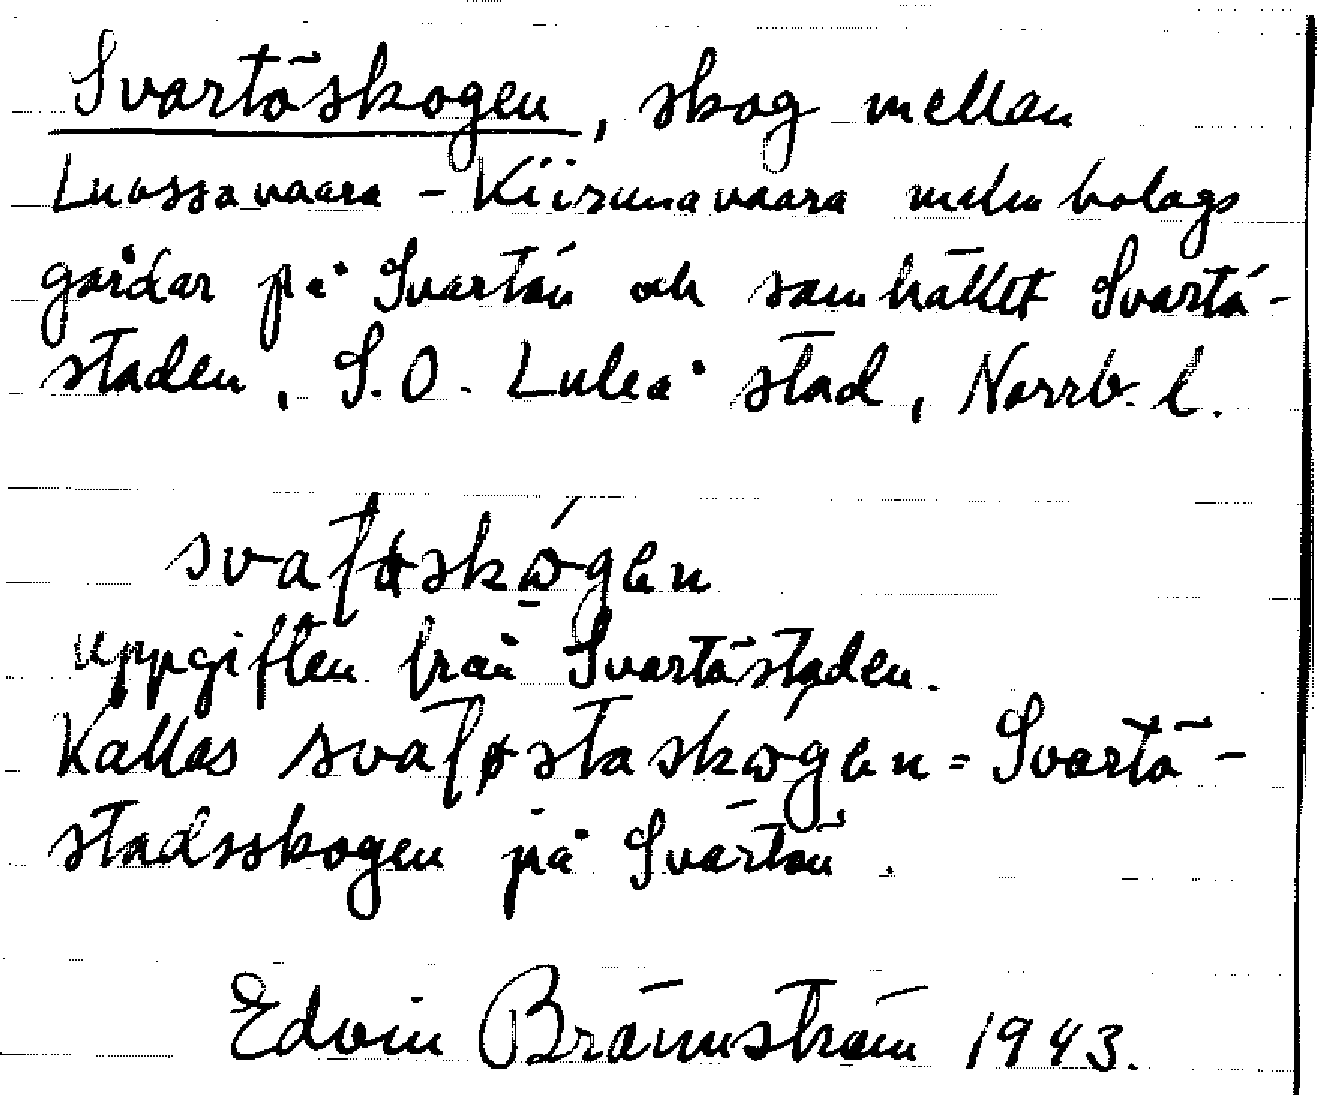 Svartöskogen, skog mellan
Luossavaara - Kiirunavaara malmbolags
gårdar på Svartön och samhället Svartö-
staden, S.O. Luleå stad, Norrb. l.
uppgiften från Svartöstaden.
Kallas = Svartö-
stadsskogen på Svartön.
Edvin Brännström 1943.